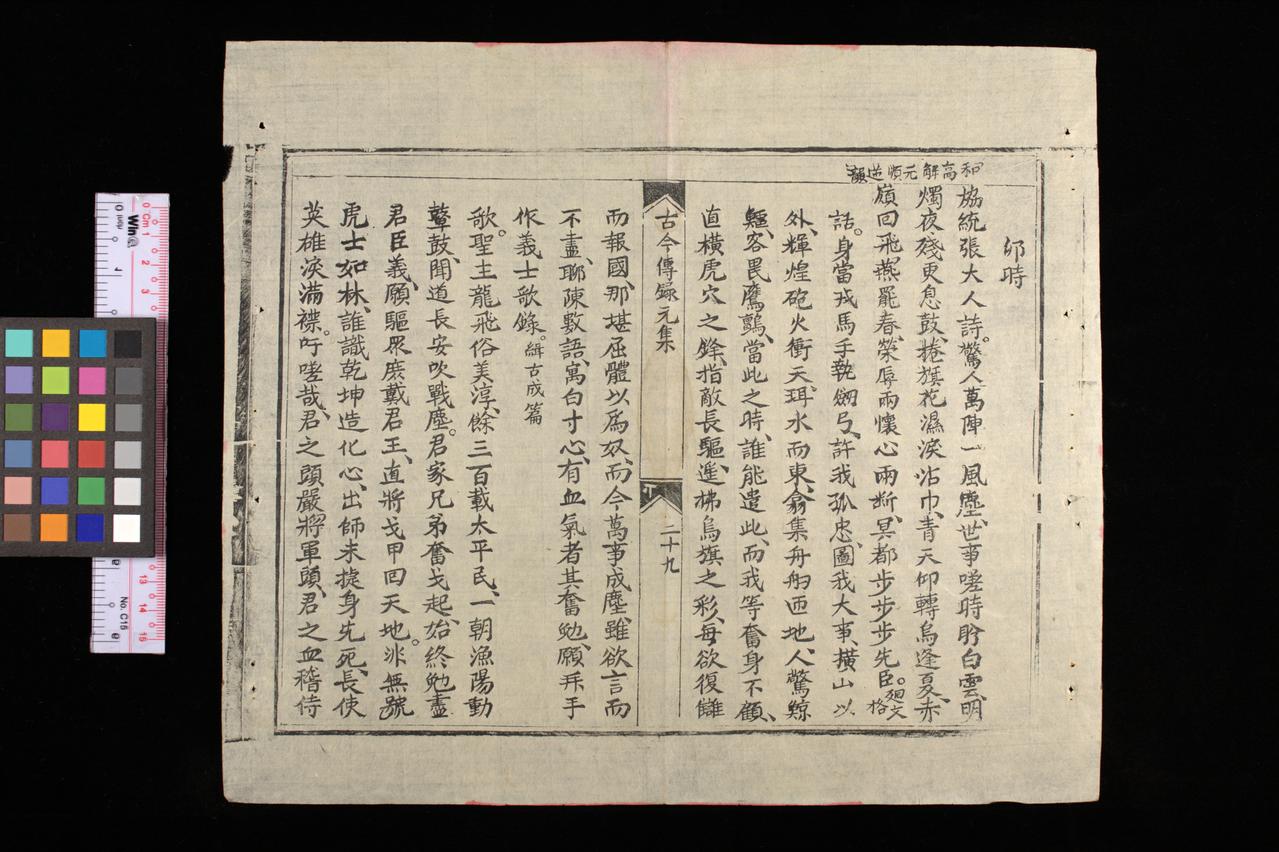 和高解元順造韻
卯時
協統張大人詩。驚人萬陣一風塵、世事嗟時盻白雲、明
燭夜殘更息鼓、捲旗花濕淚沾巾、青天仰轉烏逢夏、赤
嶺回飛燕罷春、榮辱兩懷心兩断、冥都步步步先臣。廻文格
話。身當戎馬手執劒弓、許我孤忠、圖我大事、橫山以
外、輝煌砲火衝天、珥水而東、翕集舟舠匝地、人驚鯨
鱷、客畏鷹鸇、當此之時、誰能遣此、而我等奮身不顧、
直橫虎穴之鋒、指敵長驅、遥拂烏旗之彩、每欲復讎
古今傳錄元集
丁
二十九
而報國、那堪屈體以爲奴、而今萬事成塵、雖欲言而
不盡、聊陳數語、寓白寸心、有血氣者其奮勉、願拜手
作義士歌錄。緝古成篇
歌。聖主龍飛俗美淳、餘三百載太平民、一朝漁陽動
鼙鼓、聞道長安吹戰塵。君家兄弟奮戈起、始終勉盡
君臣義、願驅眾庶戴君王、直將戈甲回天地。氷無號
虎士如林、誰識乾坤造化心、出師未捷身先死、長使
英雄淚滿襟。吁嗟哉、君之頭嚴將軍頭、君之血嵇侍